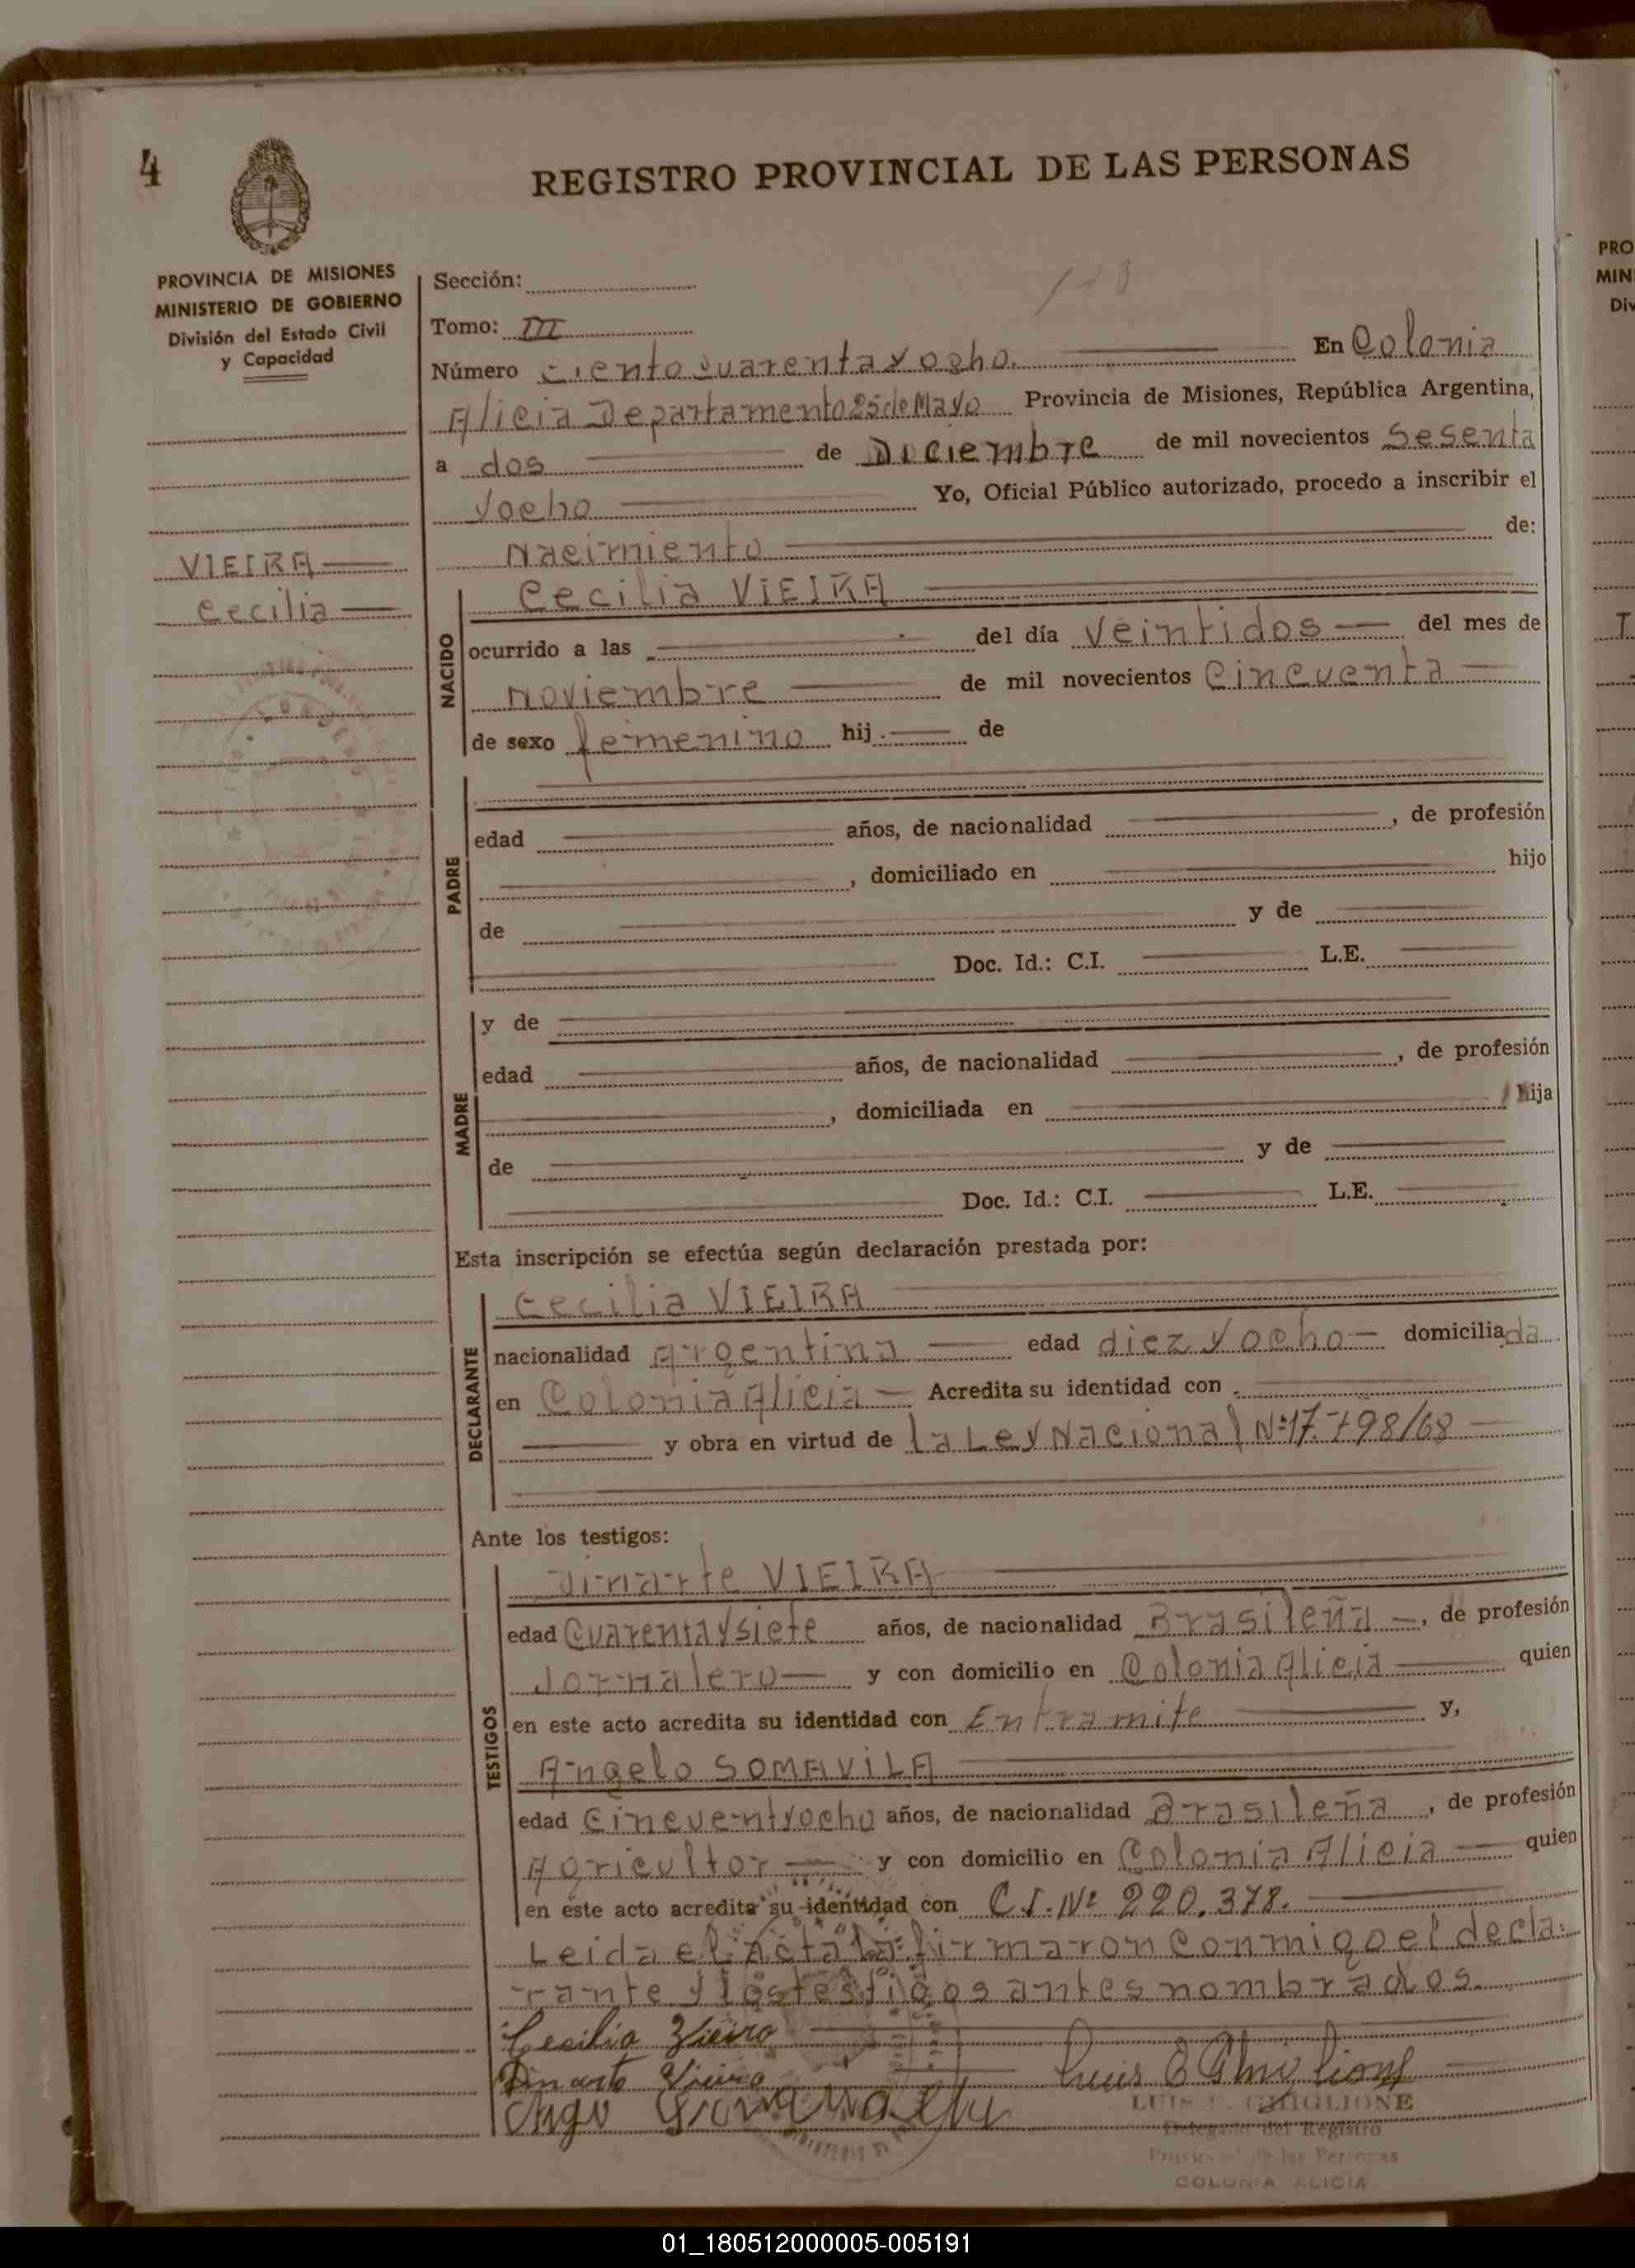 4
REGISTRO PROVINCIAL DE LAS PERSONAS
PROVINCIA DE MISIONES
MINISTERIO DE GOBIERNO
División del Estado Civil
y Capacidad
VIEIRA
Cecilia
Sección:
Tomo: III
Número Ciento cuarenta y ocho. En Colonia
Alicia Departamento 25 de Mayo Provincia de Misiones, República Argentina,
a dos de Diciembre de mil novecientos Sesenta
y ocho Yo, Oficial Público autorizado, procedo a inscribir el
Nacimiento de:
NACIDO
Cecilia VIEIRA
ocurrido a las del día Veintidos del mes de
Noviembre de mil novecientos Cincuenta
de sexo femenino hij de
PADRE
edad años, de nacionalidad , de profesión
, domiciliado en hijo
de y de
Doc. Id.: C.I. L.E.
MADRE
y de
edad años, de nacionalidad , de profesión
, domiciliada en hija
de y de
Doc. Id.: C.I. L.E.
Esta inscripción se efectúa según declaración prestada por:
DECLARANTE
Cecilia VIEIRA
nacionalidad Argentina edad diez y ocho domiciliada
en Colonia Alicia Acredita su identidad con
y obra en virtud de la Ley Nacional Nº 17.798/68
Ante los testigos:
TESTIGOS
Dinarte VIEIRA
edad Cuarenta y siete años, de nacionalidad Brasileña, de profesión
Jornalero y con domicilio en Colonia Alicia quien
en este acto acredita su identidad con En tramite y,
Angelo SOMAVILA
edad Cincuent y ocho años, de nacionalidad Brasileña, de profesión
Agricultor y con domicilio en Colonia Alicia quien
en este acto acredita su identidad con C.I. Nº 220.378.
Leida el Acta la firmaron conmigo el decla-
rante y los testigos antes nombrados.
Cecilia Vieira
Dinarte Vieira
LUIS GHIGLIONE
Delegado del Registro
Provincial de las Personas
COLONIA ALICIA
PRO
MIN
Div
01_180512000005-005191